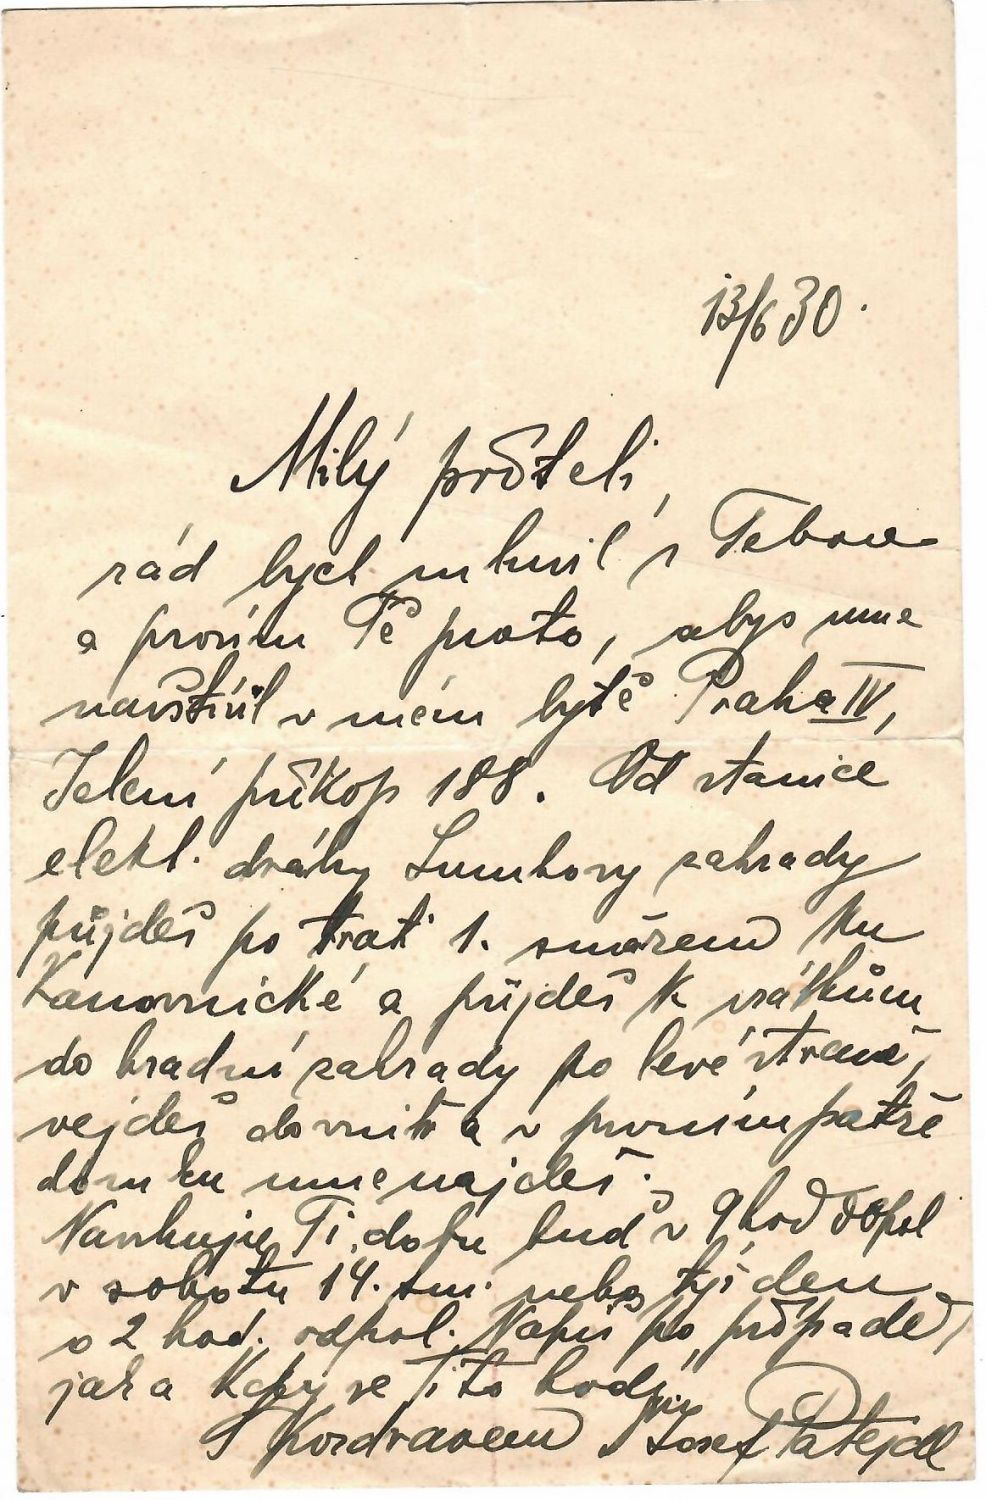 13/6 30.
Milý příteli,
rád bych mluvil s Tebou
a prosím Tě proto, abys mne
navštívil v mém bytě Praha IV,
Jelení příkop 188. Od stanice
elekt. dráhy Lumbovy zahrady
půjdeš po trati 1. směrem ku
Kanovnické a přijdeš k vrátkům
do hradní zahrady po levé straně,
vejdeš dovnitř a v prvním patře
domku mne najdeš.
Navrhuji Ti dobu buď v 9 hod dopol
v sobotu 14. tm. nebo týž den
o 2 hod. odpol. Napiš po případě,
jak a kdy se Ti to hodí.
S pozdravem Josef Patejdl